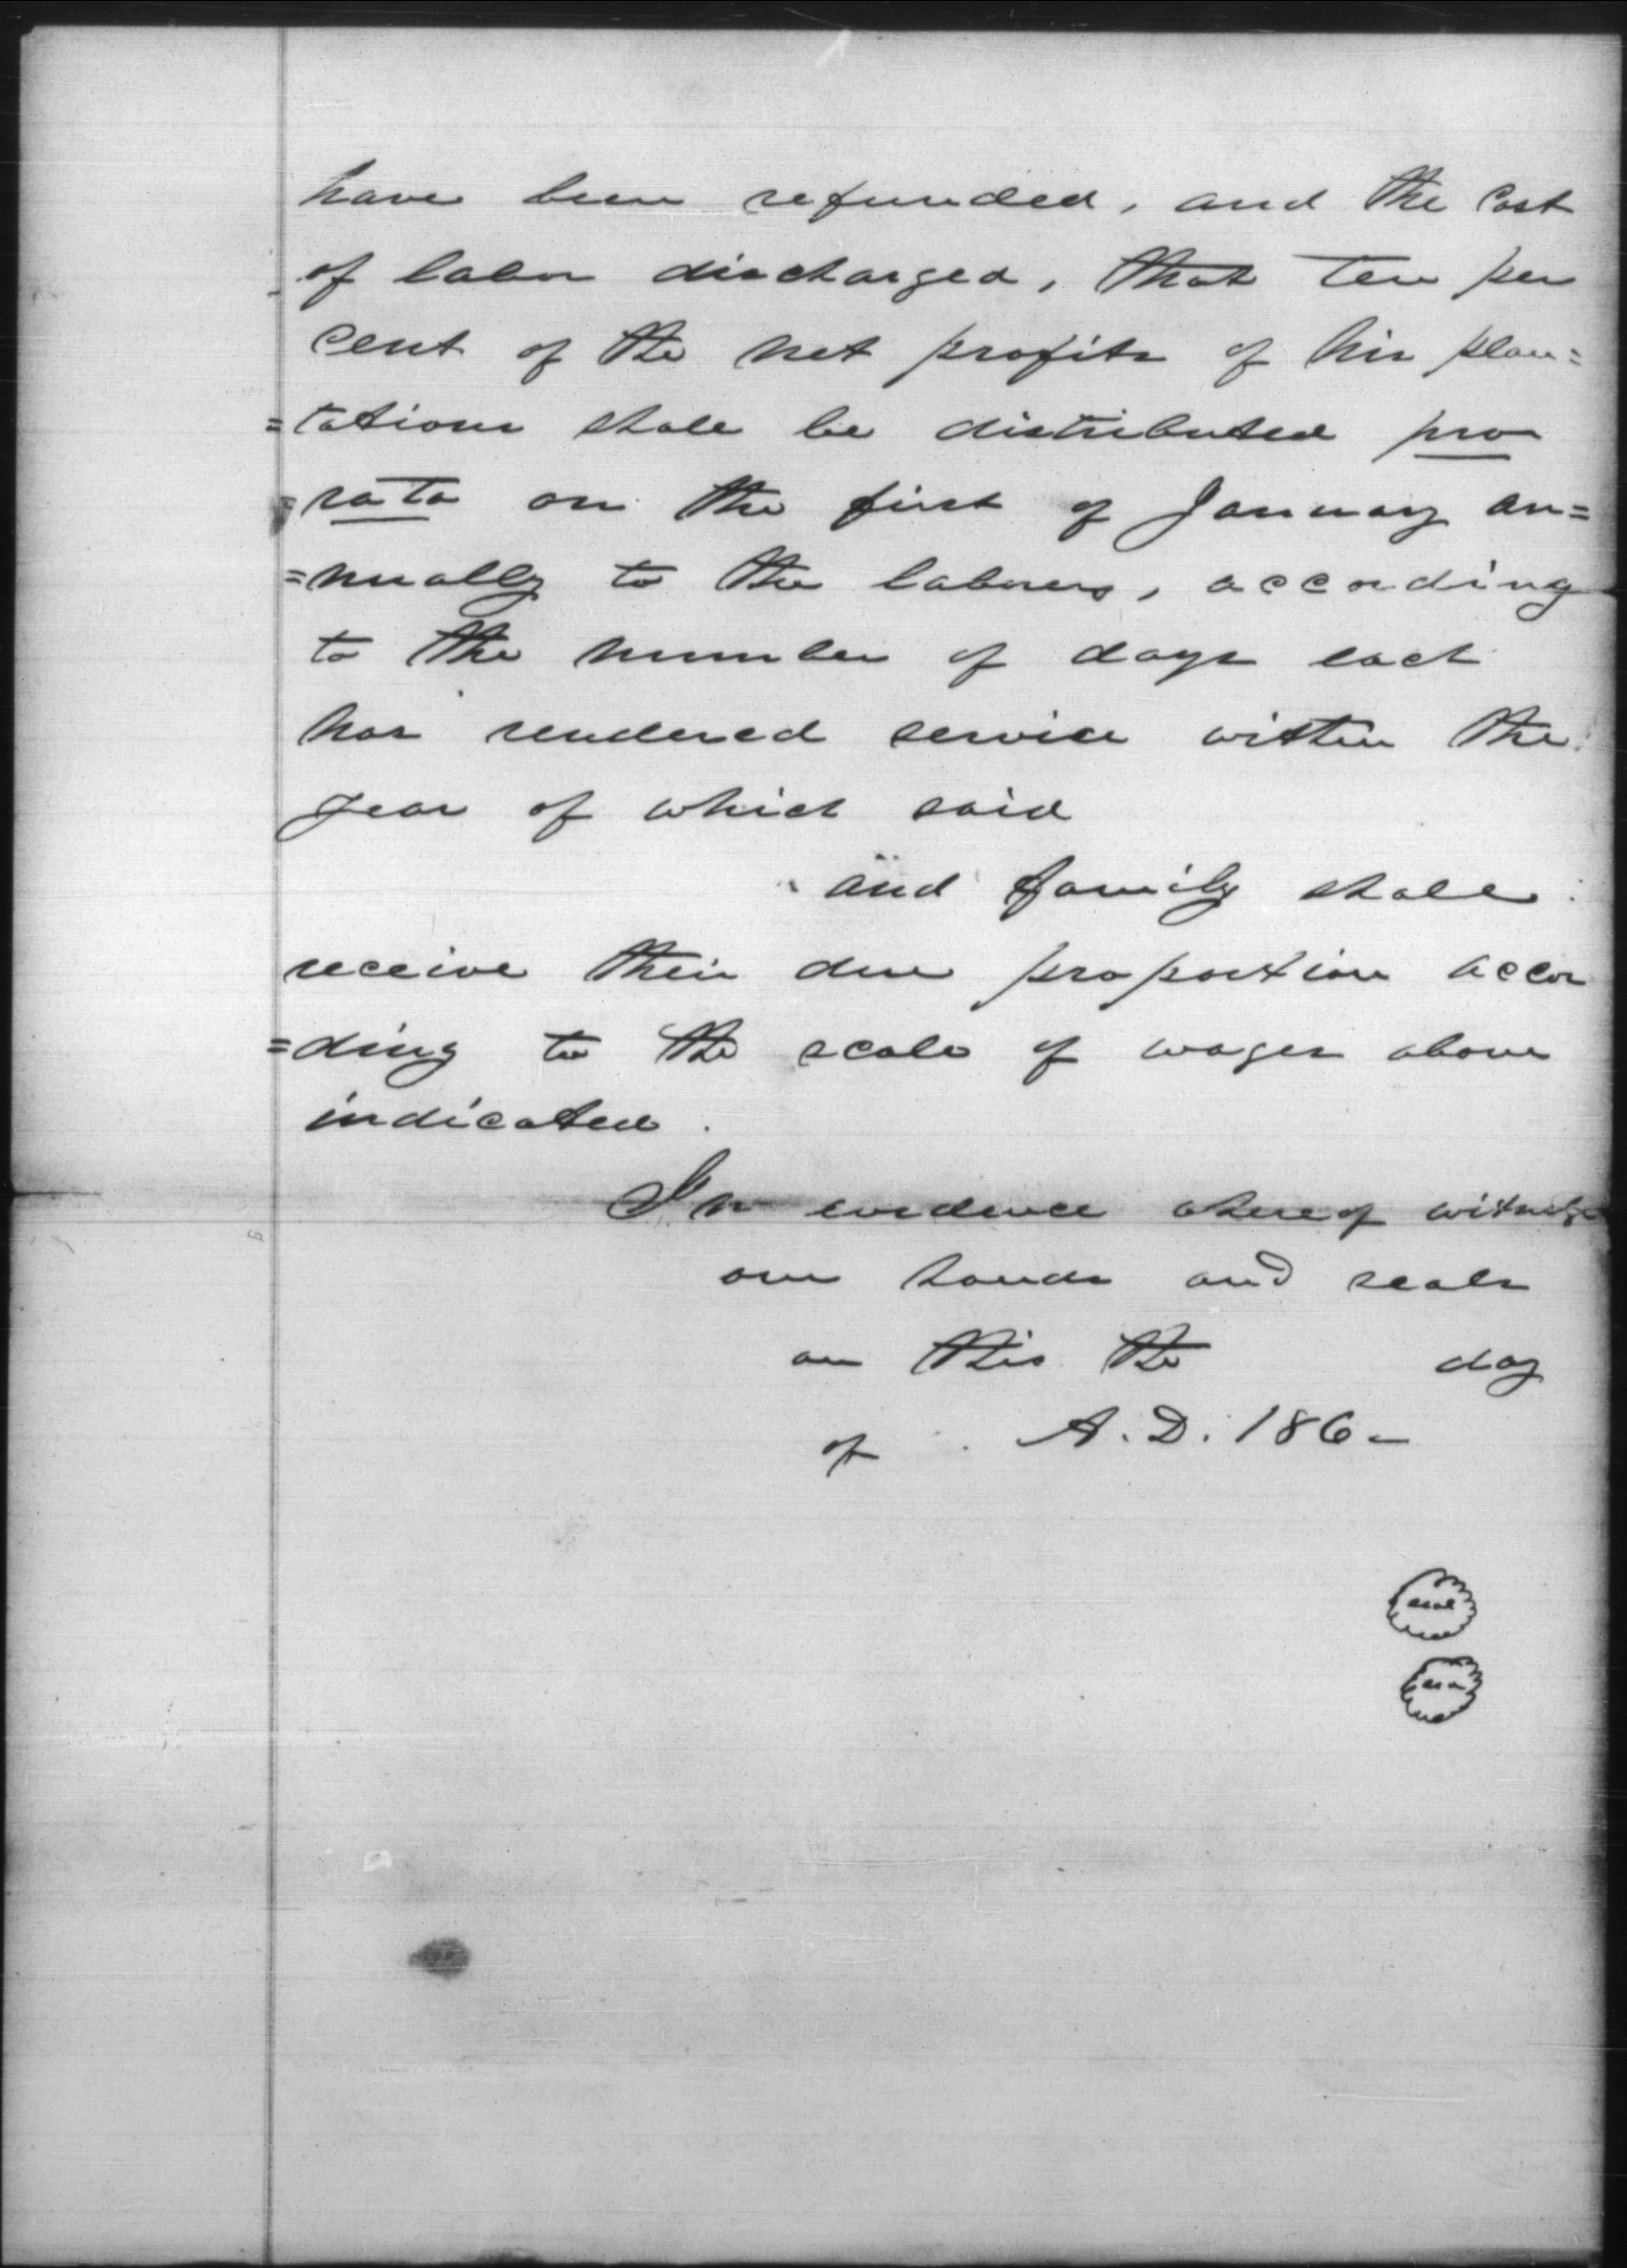 have been refunded, and the Cost
of labor discharged, that ten per
cent of the net profits of his plan=
=tations shall be distributed pro
=rata on the first of January an=
=nually to the laborers, according
to the number of days each
has rendered service within the
year of which said
and family shall
receive their due proportion accor
=ding to the scale of wages above
indicated.
In evidence whereof witness
our hands and seals
on this the day
of A.D. 186-
seal
seal